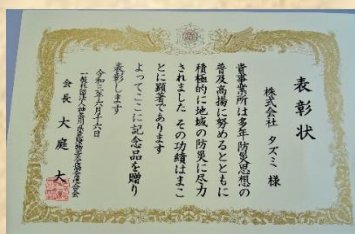 表彰状
株式会社 タズミ 様
貴事業所は多年防災思想の
普及高揚に努めるとともに
積極的に地域の防災に尽力
されました その功績はまこ
とに顕著であります
よってここに記念品を贈り
表彰します
令和三年六月十六日
会長 大庭 大